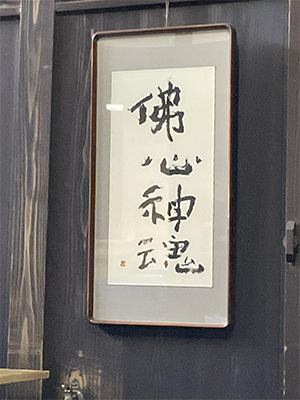 佛心神魂